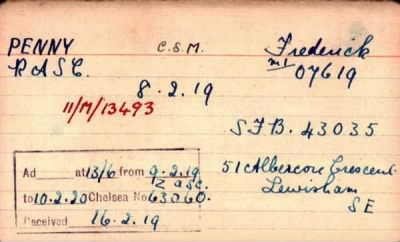 PENNY C.S.M. Frederick
RASC. M1/07619
8.2.19
11/M/13493
SFB. 43035
Ad at 13/6 from 9.2.19
to 10.2.20 Chelsea No 63060.
Received 16.2.19
51 Albercon Crescent
Lewisham
SE